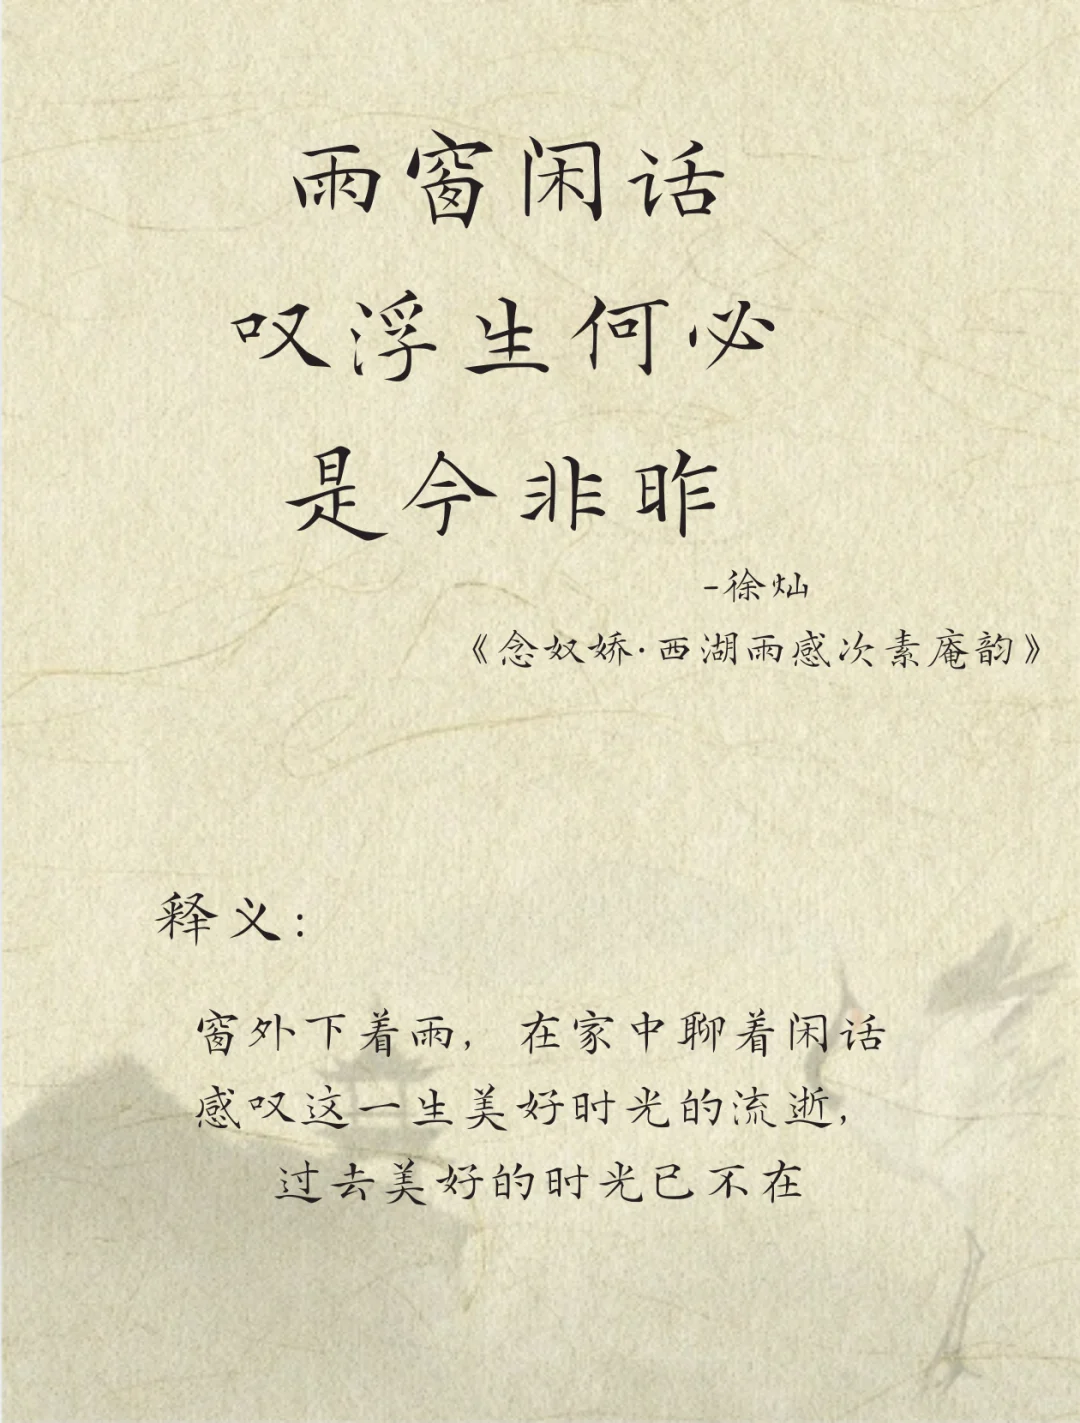 雨窗闲话
叹浮生何必
是今非昨
-徐灿
《念奴娇·西湖雨感次素庵韵》
释义：
窗外下着雨，在家中聊着闲话
感叹这一生美好时光的流逝，
过去美好的时光已不在